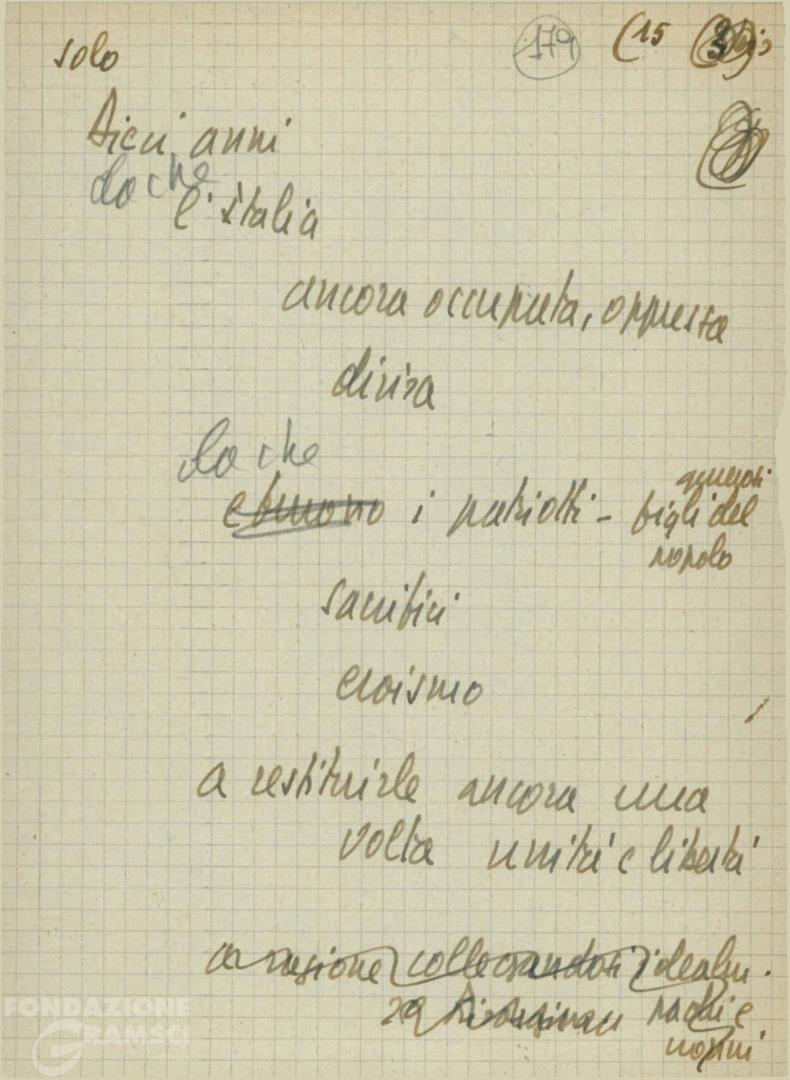 solo 179 (15
Dieci anni
da che
l'Italia
ancora occupata, oppressa
divisa
da che
i patrioti - generosi
figli del
popolo
sacrifici
eroismo
a restituirle ancora una
volta unità e libertà
a ragione collegandosi idealm.
padri e
nonni
FONDAZIONE
GRAMSCI